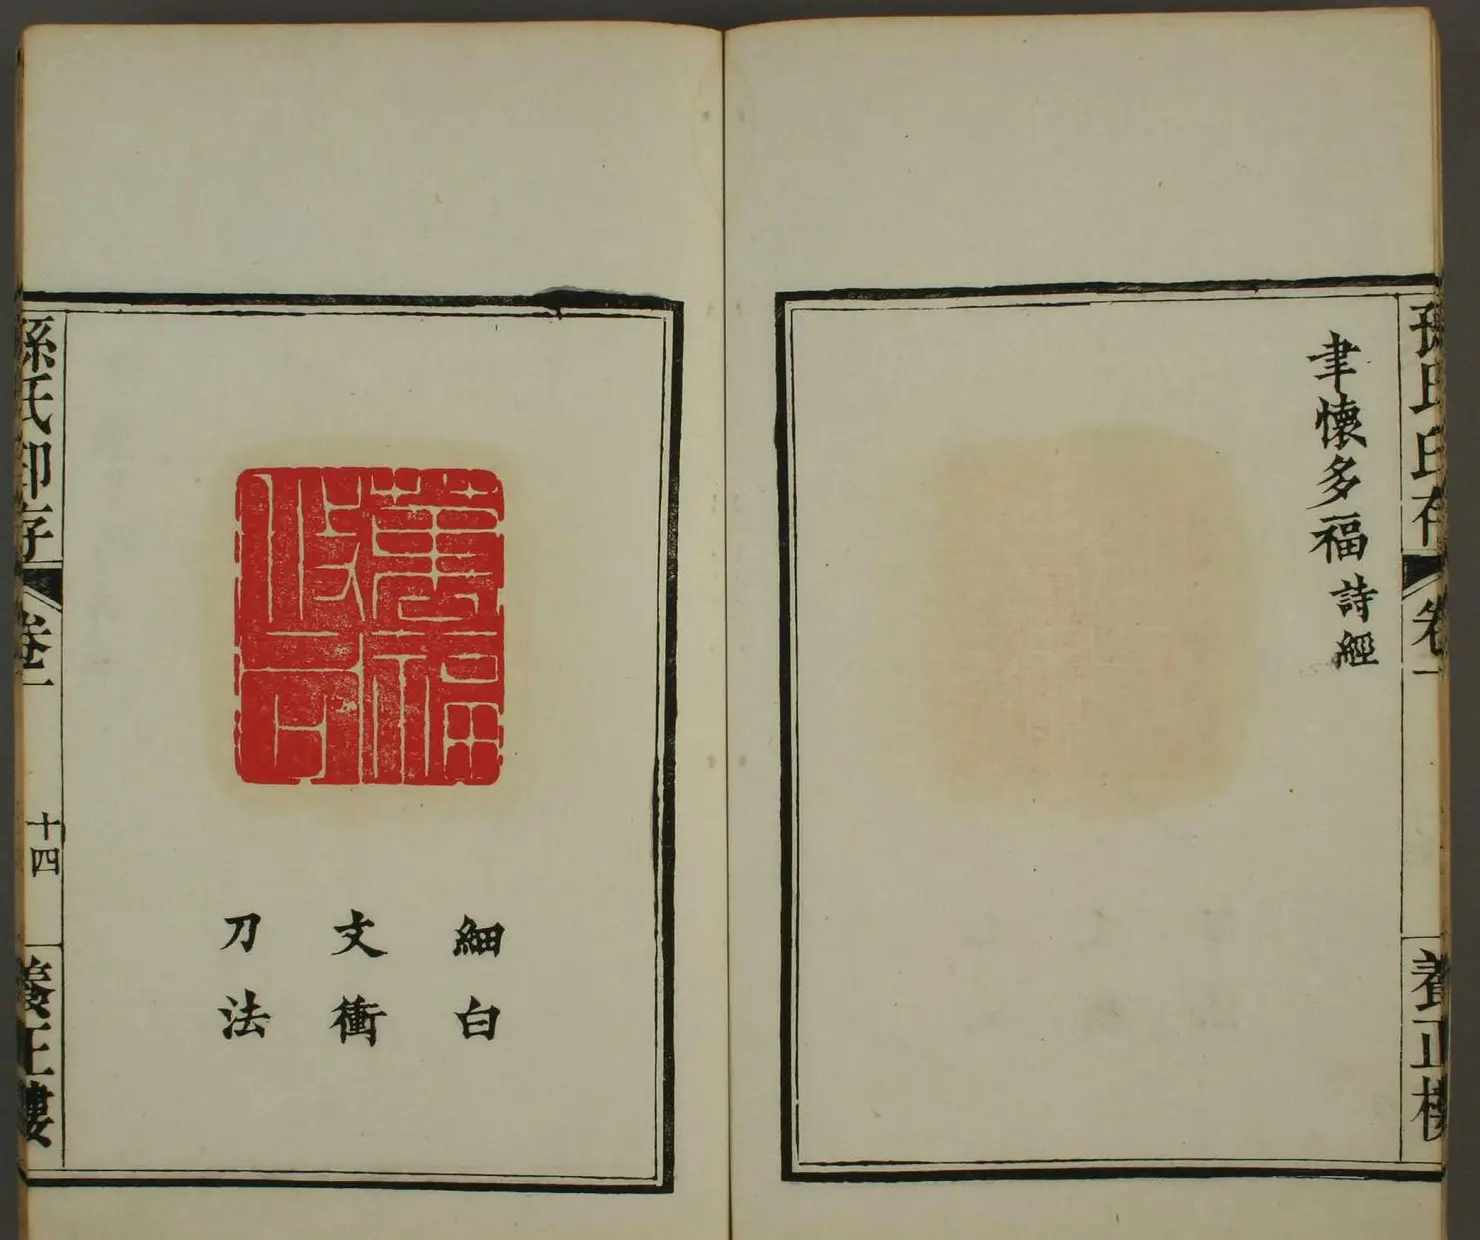 孫氏印存
卷一
養正樓
聿懷多福 詩經
萬福
攸同
細白
文衝
刀法
孫氏印存
卷一
十四
養正樓